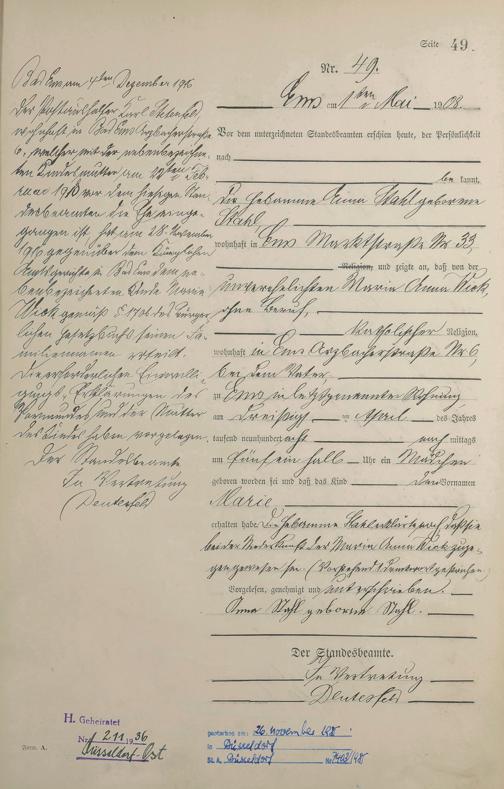 Seite 49.
Nr. 49.
Ems am 1ten Mai 1908.
Vor dem unterzeichneten Standesbeamten erschien heute, der Persönlichkeit
nach
be kannt,
die Hebamme Anna Stahl geborene
Stahl
wohnhaft in Ems Marktstraße Nr 33,
Religion, und zeigte an, daß von der
unverehelichten Maria Anna Wick,
ohne Beruf,
katholischer Religion,
wohnhaft in Ems Arzbacherstraße Nr 6
bei dem Vater
zu Ems in letztgenannter Wohnung
am dreißigsten April des Jahres
tausend neunhundert acht nach mittags
um fünf ein halb Uhr ein Mädchen
geboren worden sei und daß das Kind den Vornamen
Marie
erhalten habe. Die Hebamme Stahl erklärte noch daß sie
bei der Niederkunft der Maria Anna Wick zuge-
gen gewesen sei. (Vorstehend 1 Druckwort gestrichen)
Vorgelesen, genehmigt und unterschrieben.
Anna Stahl geborene Stahl.
Der Standesbeamte.
In Vertretung
Bad Ems am 4ten Dezember 1916
Der Karl
wohnhaft in Bad Ems Arzbacherstraße
6, welcher mit der nebenbezeichne-
ten Kindesmutter am
vor dem hiesigen Stan-
desbeamten die Ehe einge-
gangen ist, hat am 28. November
1916 gegenüber dem Königlichen
Amtsgerichte in Bad Ems dem ne-
benbezeichneten Kinde Marie
Wick gemäß § 1706 des Bürger-
lichen Gesetzbuchs seinen Fa-
miliennamen erteilt.
Die erforderlichen Einwilli-
gungs-Erklärungen des
Vormundes und der Mutter
des Kindes haben vorgelegen.
Der Standesbeamte
In Vertretung
H. Geheiratet
Nr. 211 1936
Düsseldorf-Ost
Form. A.
gestorben am: 26. november
in Düsseldorf
St. A. Düsseldorf Nr.